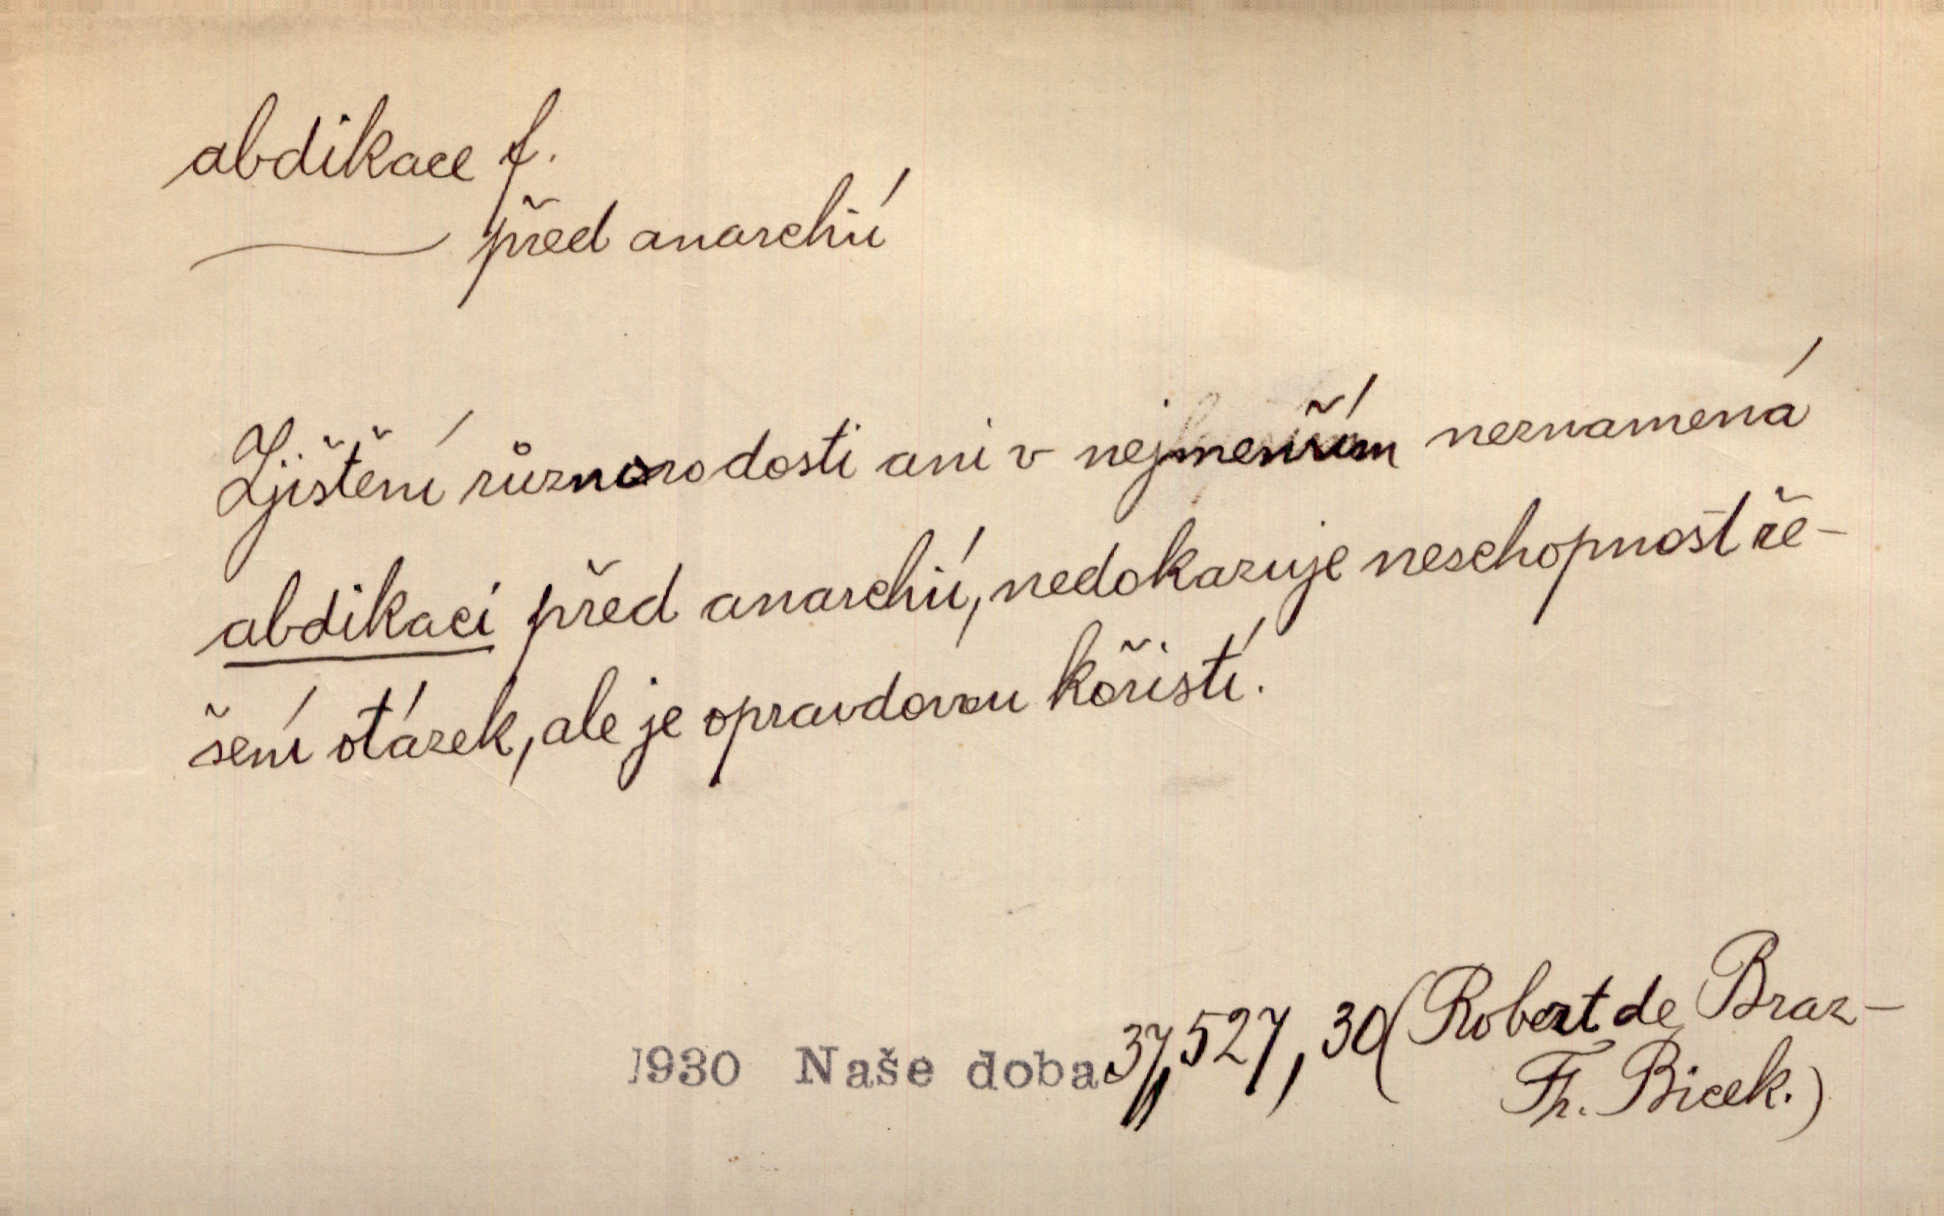 abdikace f.
— před anarchií
Zjištění různorodosti ani v nejmenším neznamená
abdikaci před anarchií, nedokazuje neschopnost ře-
šení otázek, ale je opravdovou kořistí.
1930 Naše doba 37, 527, 30 (Robert de Braz-
Fr. Bicek.)